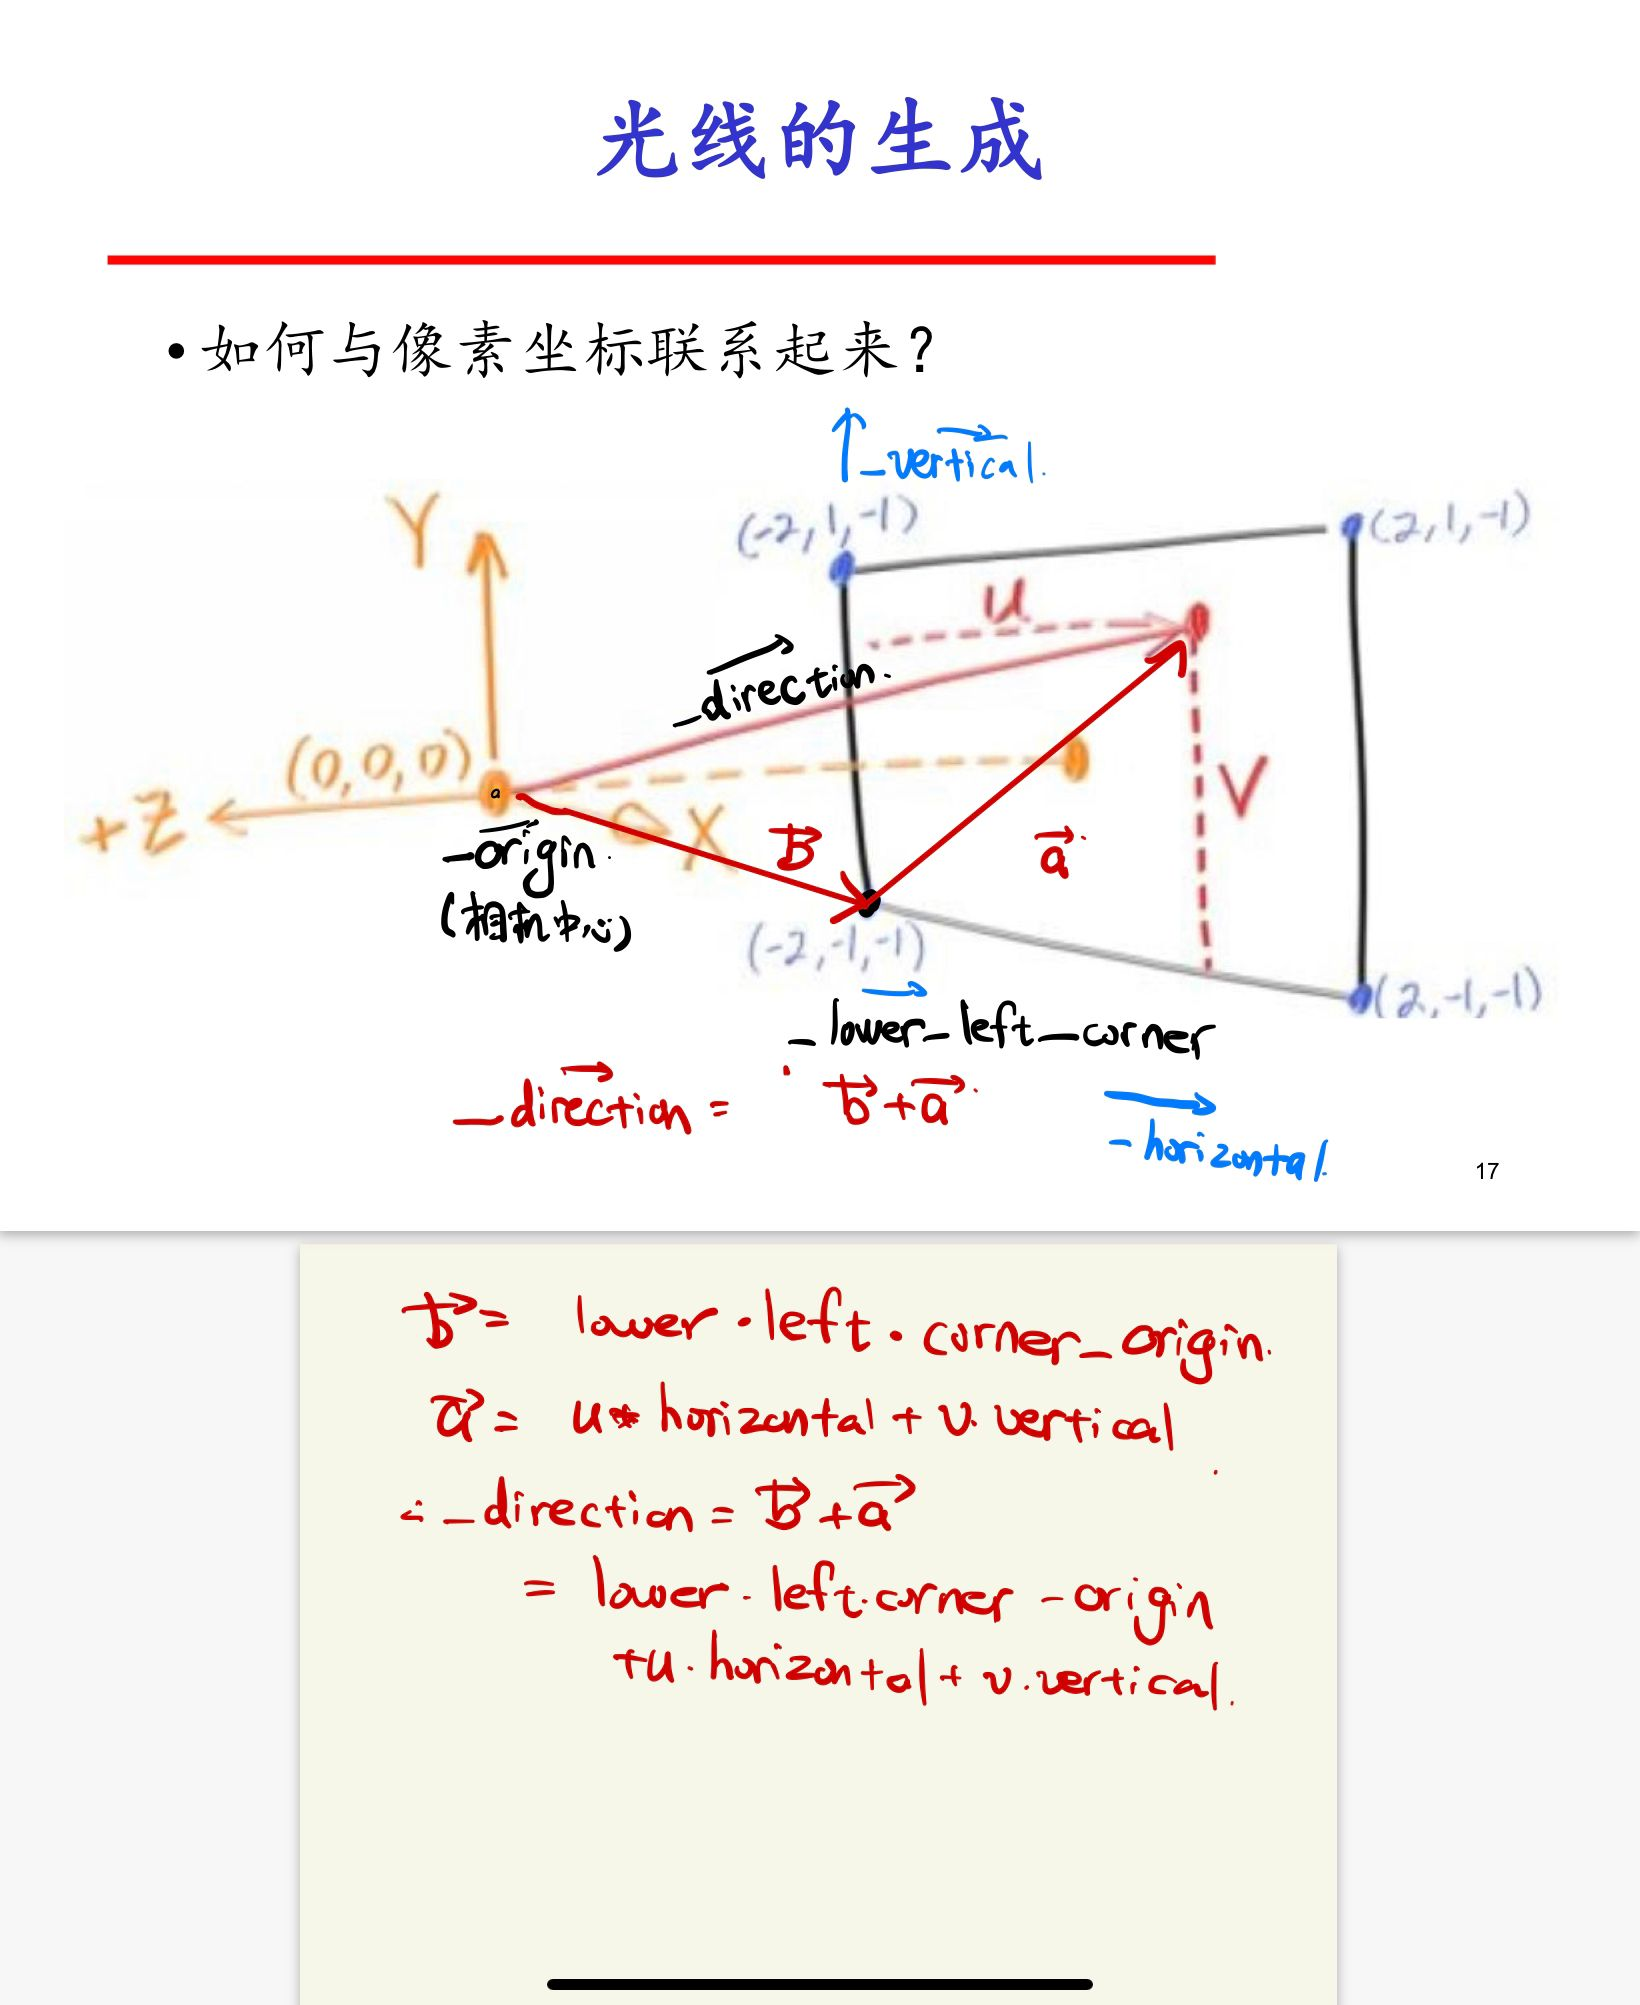 光线的生成
• 如何与像素坐标联系起来？
_vertical.
Y
(-2,1,-1)
(2,1,-1)
u
_direction.
(0,0,0)
+Z
a
X
V
_origin.
(相机中心)
B
a
(-2,-1,-1)
(2,-1,-1)
_lower_left_corner
_direction = b+a
_horizontal.
17
b = lower·left·corner_origin.
a = u* horizontal + v·vertical
∴ _direction = B+a
= lower·left·corner -origin
+u·horizontal + v·vertical.